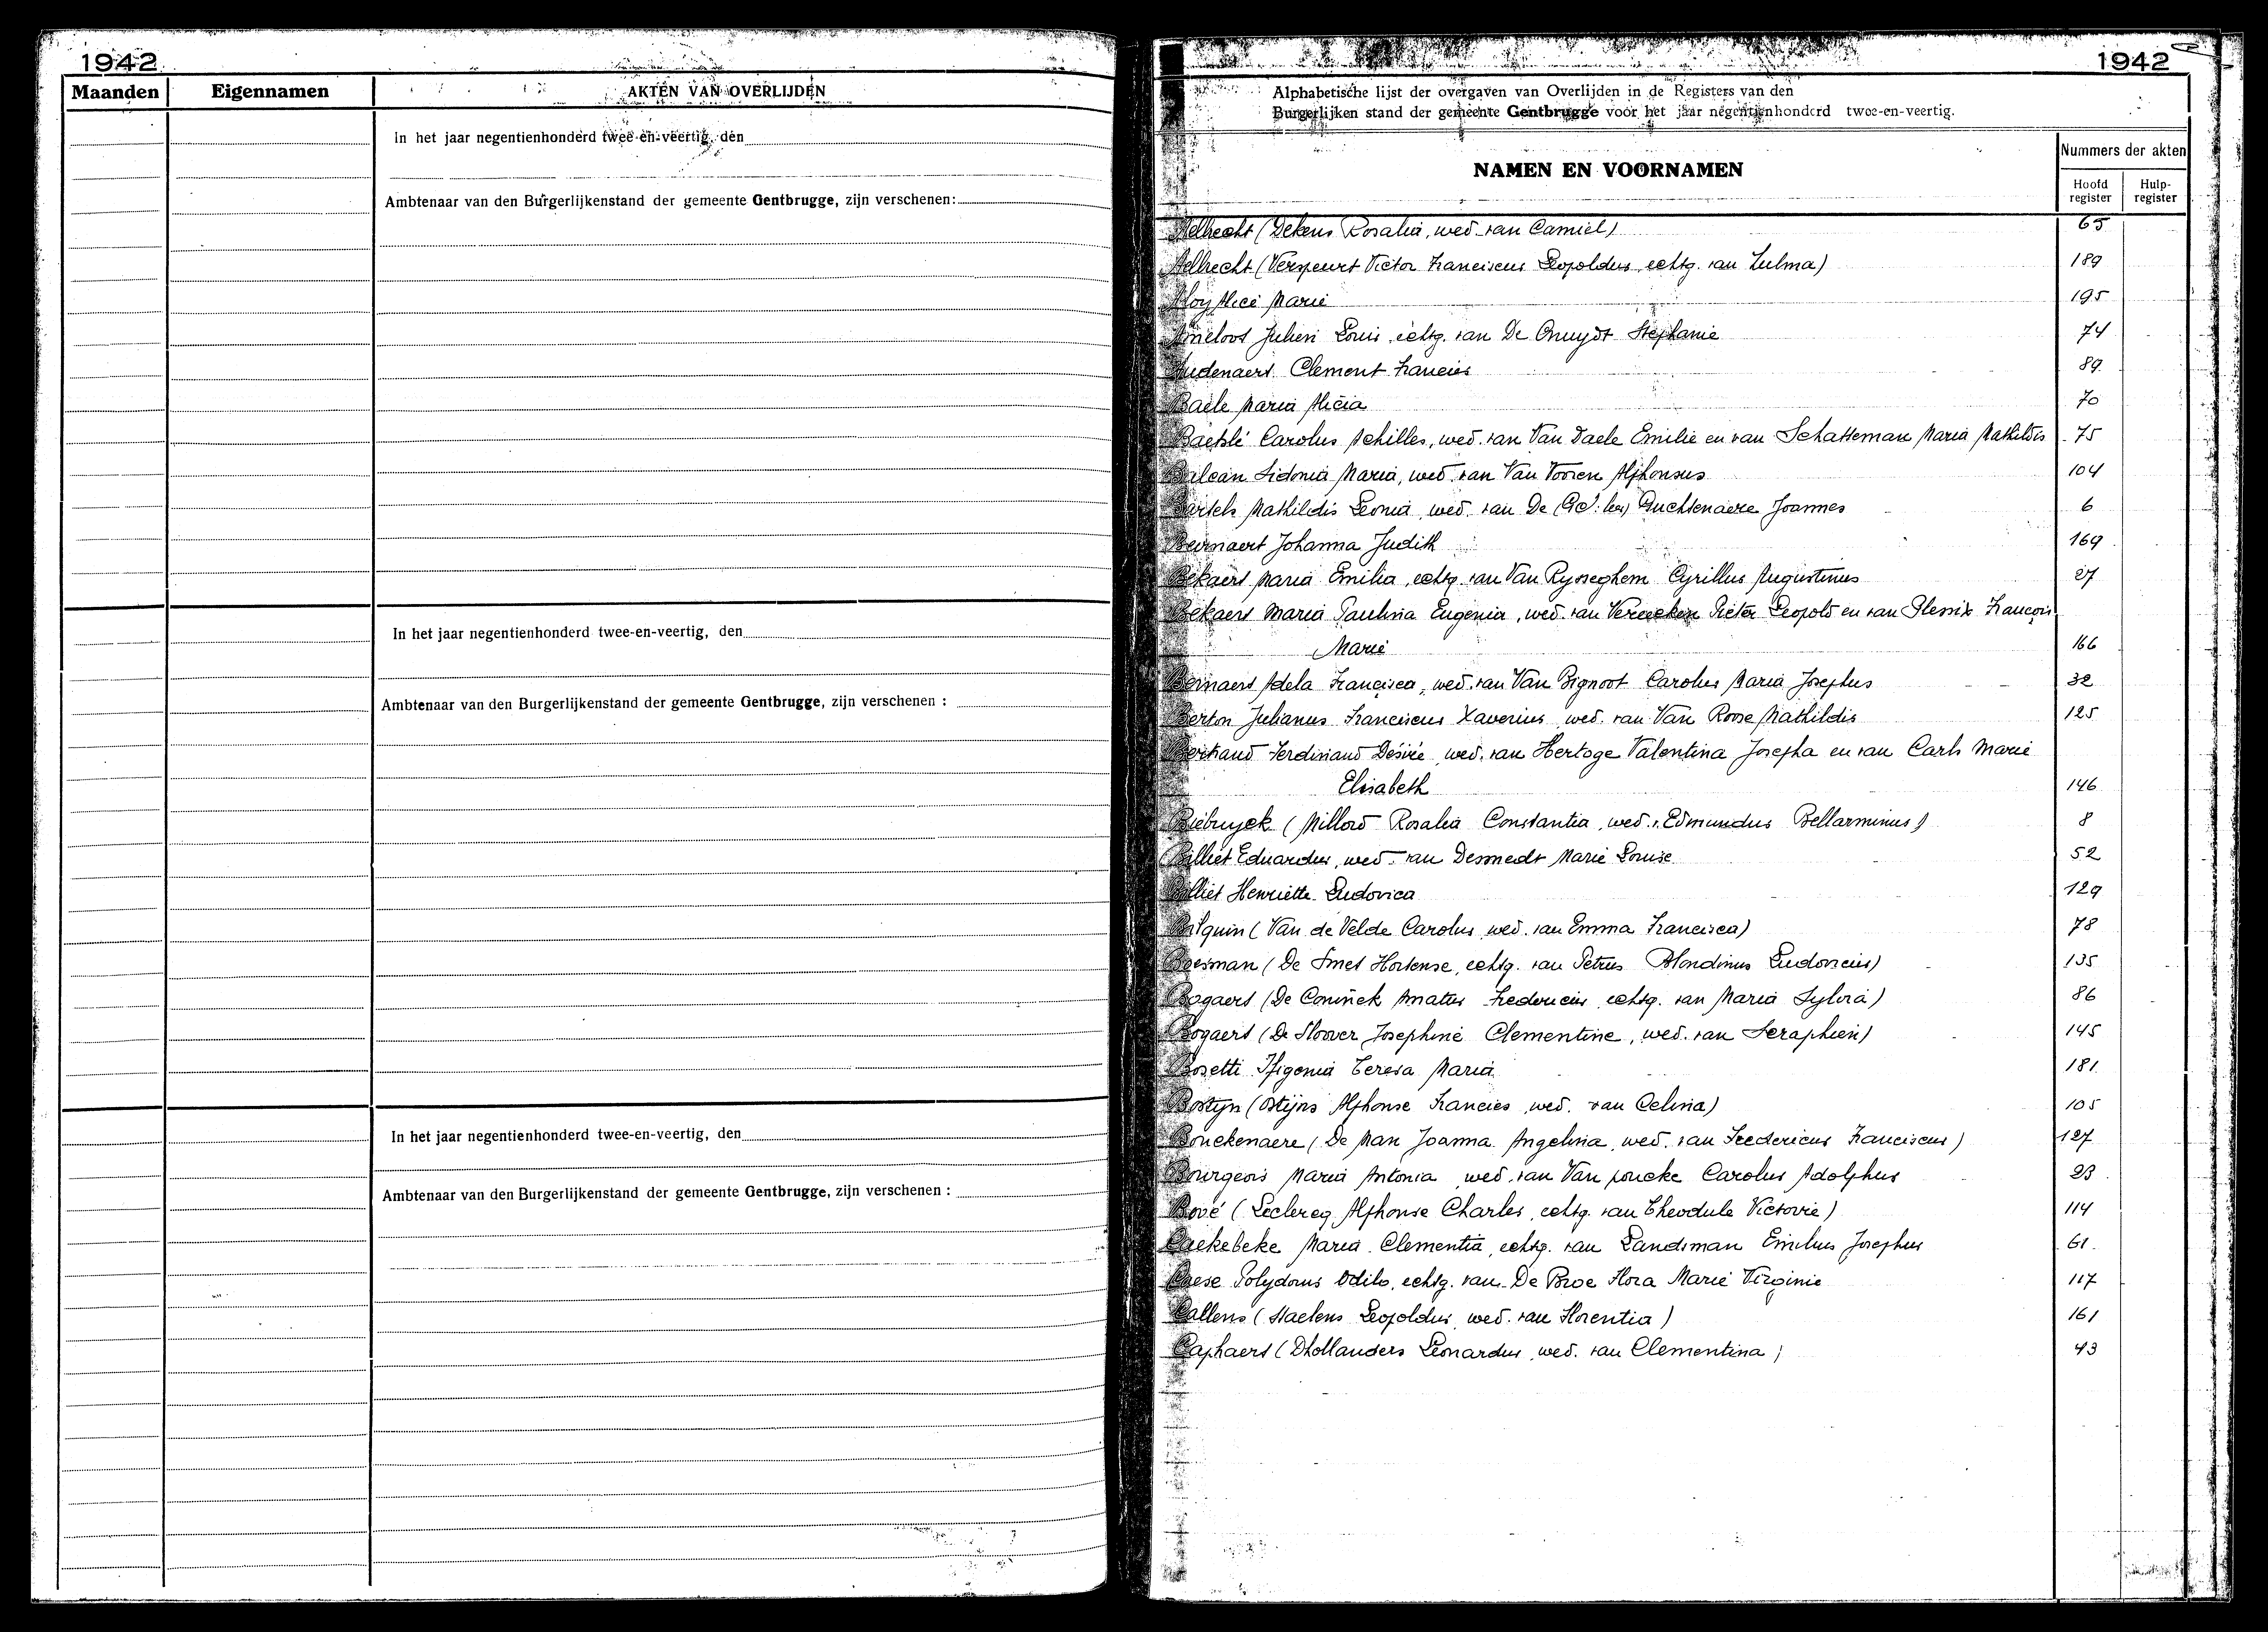 1942
Maanden Eigennamen AKTEN VAN OVERLIJDEN
In het jaar negentienhonderd twee-en-veertig, den
Ambtenaar van den Burgerlijkenstand der gemeente Gentbrugge, zijn verschenen:
In het jaar negentienhonderd twee-en-veertig, den
Ambtenaar van den Burgerlijkenstand der gemeente Gentbrugge, zijn verschenen :
In het jaar negentienhonderd twee-en-veertig, den
Ambtenaar van den Burgerlijkenstand der gemeente Gentbrugge, zijn verschenen :
1942
Alphabetische lijst der overgaven van Overlijden in de Registers van den
Burgerlijken stand der gemeente Gentbrugge voor het jaar negentienhonderd twee-en-veertig.
NAMEN EN VOORNAMEN
Nummers der akten
Hoofd register
Hulp- register
Aelbrecht (Dekens Rosalia, wed. van Camiel) 65
Aelbrecht (Verspeurt Victor Franciscus Leopoldus, echtg. van Zulma) 189
Aloy Alice Marie 195
Ameloot Julien Louis, echtg. van De Gruyter Stephanie 74
Audenaert Clement Francies 89
Baele Maria Alicia 70
Baetslé Carolus Achilles, wed. van Van Daele Emilie en van Schatteman Maria Mathildis 75
Balcaen Sidonia Maria, wed. van Van Vooren Alphonsus 104
Bartels Mathildis Leonia, wed. van De Guchtenaere Joannes 6
Beirnaert Johanna Judith 169
Bekaert Maria Emilia, echtg. van Van Rysseghem Cyrillus Augustinus 27
Bekaert Maria Paulina Eugenia, wed. van Vereecken Pieter Leopold en van Plessix François
Marie 166
Bernaert Adela Francisca, wed. van Van Pignoot Carolus Maria Josephus 32
Berton Julianus Franciscus Xaverius wed. van Van Roose Mathildis 125
Bertrand Ferdinand Désiré, wed. van Hertoge Valentina Josepha en van Carls Marie
Elisabeth 146
Biebuyck (Millord Rosalia Constantia, wed. v. Edmundus Bellarminus) 8
Billiet Eduardus, wed. van Desmedt Marie Louise 52
Billiet Henriette Ludovica 129
Bilquin (Van de Velde Carolus wed. van Emma Francisca) 78
Boesman (De Smet Hortense, echtg. van Petrus Blondinus Ludovicus) 135
Bogaert (De Coninck Amatus Fredericus echtg. van Maria Sylvia) 86
Bogaert (De Sloover Josephine Clementine, wed. van Seraphien) 145
Bosetti Ifigenia Teresa Maria 181
Bostyn (Stijns Alphonse Francies wed. van Celina) 105
Bouckenaere (De Man Joanna Angelina, wed. van Fredericus Franciscus) 127
Bourgeois Maria Antonia wed. van Van poucke Carolus Adolphus 23
Bové (Leclercq Alphonse Charles, echtg. van Theodule Victorie) 114
Caekebeke Maria Clementia, echtg. van Landsman Emilius Josephus 61
Caese Polydorus Odilo, echtg. van De Broe Flora Marie Virginie 117
Callens (Staelens Leopoldus, wed. van Florentia) 161
Caphaert (Dhollanders Leonardus, wed. van Clementina) 43